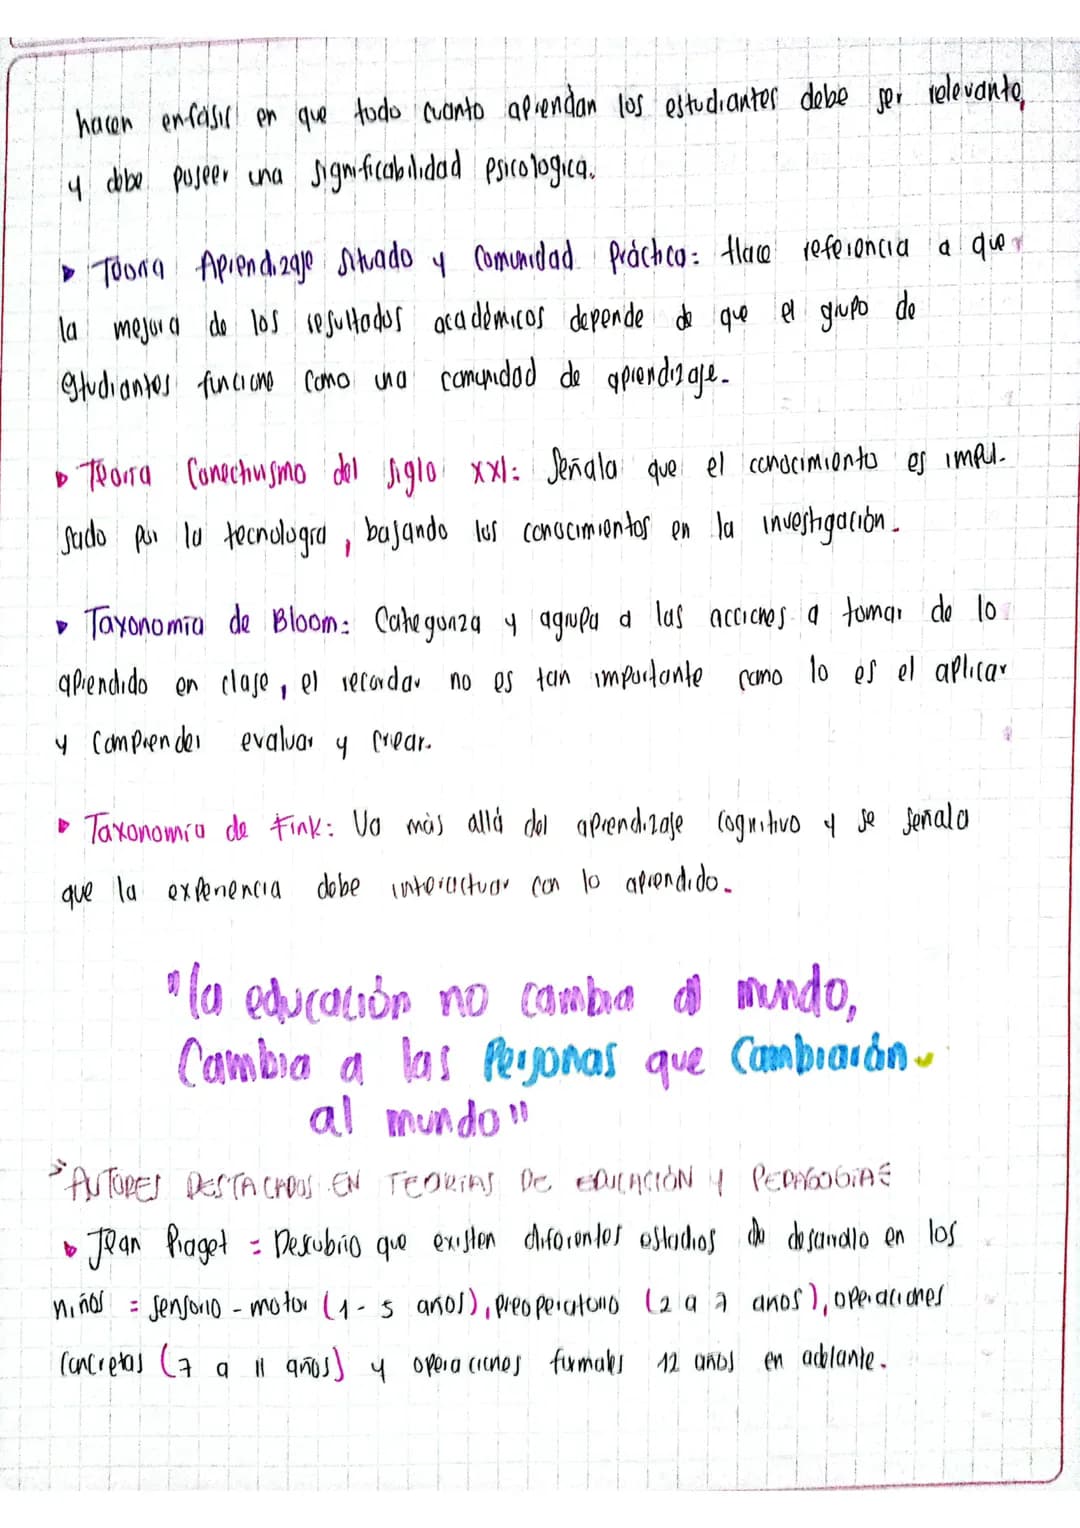 hacen enfásis en que todo cuanto aprendan los estudiantes debe ser relevante,
y debe poseer una significabilidad psicologica.
▸ Teoria Aprendizaje Situado y Comunidad Práctica: Hace referencia a que
la mejora de los resultados académicos depende de que el grupo de
estudiantes funcione como una comunidad de aprendizaje.
▸ Teoría Conectivismo del siglo XXI: Señala que el conocimiento es impul-
sado por la tecnología, basando los conocimientos en la investigación.
▸ Taxonomía de Bloom: Categoriza y agrupa a las acciones a tomar de lo
aprendido en clase, el recordar no es tan importante como lo es el aplicar
y comprender evaluar y crear.
▸ Taxonomía de Fink: Va más allá del aprendizaje cognitivo y se señala
que la experiencia debe interactuar con lo aprendido.
"la educación no cambia al mundo,
Cambia a las Personas que Cambiarán
al mundo"
AUTORES DESTACADOS EN TEORIAS DE EDUCACIÓN Y PEDAGOGIAS
▸ Jean Piaget = Descubrio que existen diferentes estadios de desarrollo en los
niños = sensorio - motor (1 - 5 años), preoperatorio (2 a 7 anos), operaciones
concretas (7 a 11 años) y operaciones formales 12 años en adelante.